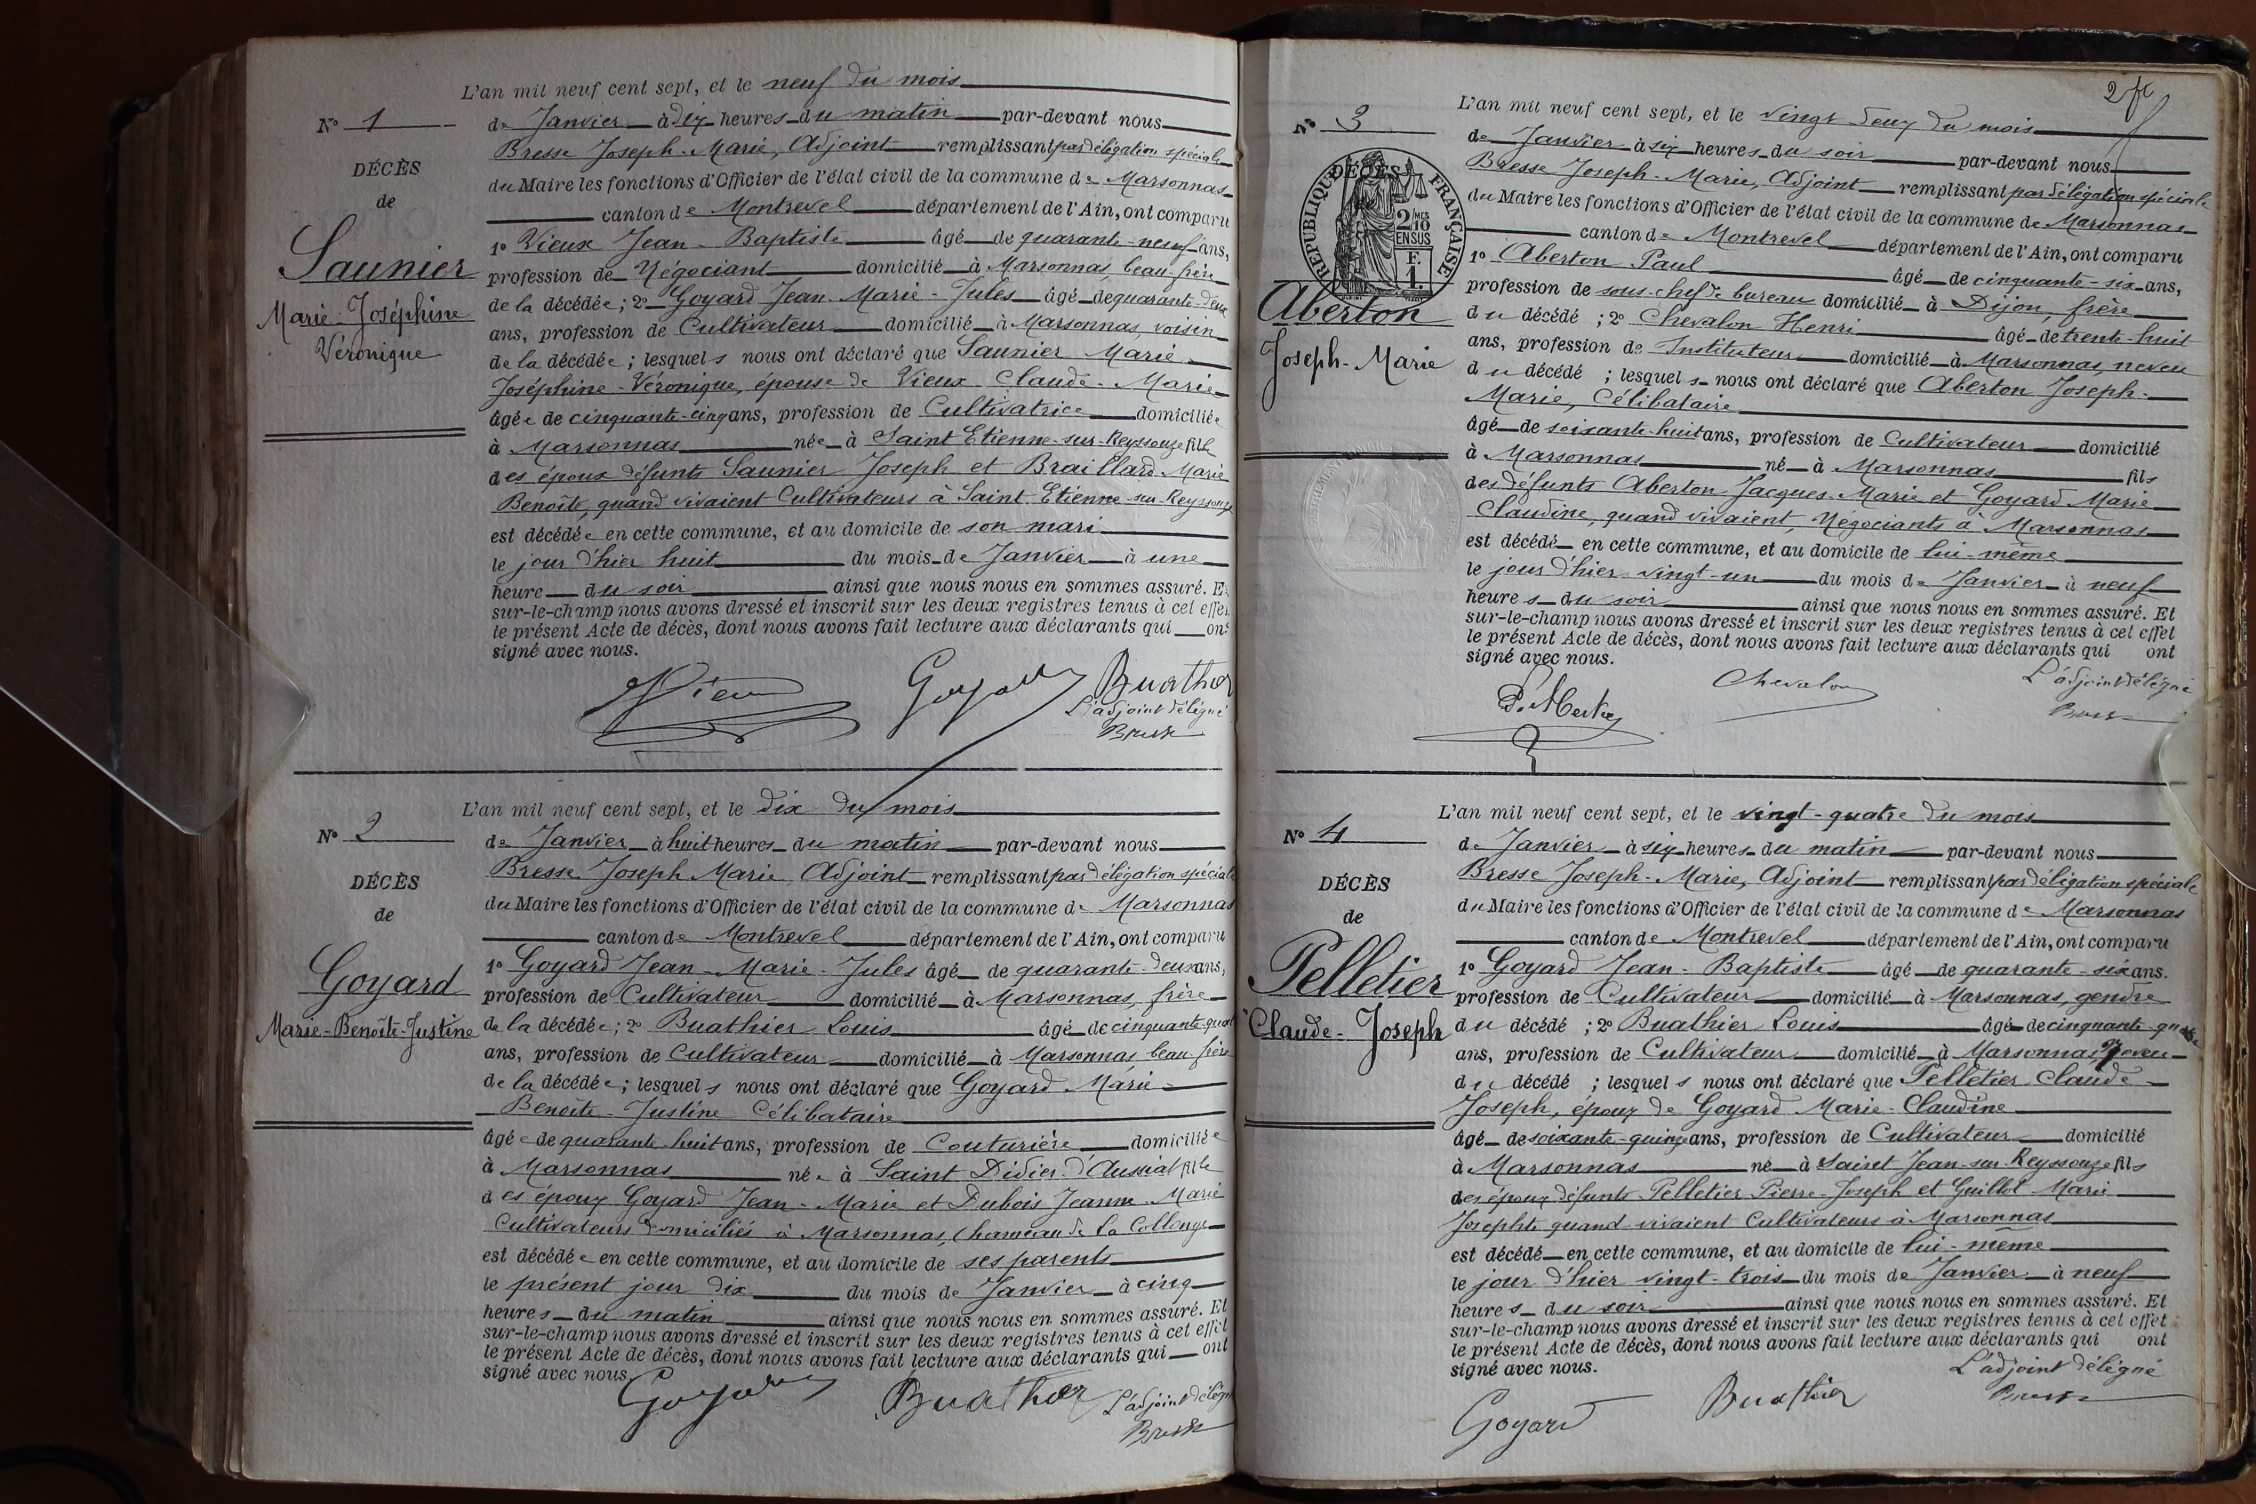 L'an mil neuf cent sept, et le neuf du mois
N° 1
de Janvier à dix heures du matin par-devant nous
Bresse Joseph-Marie, Adjoint remplissant par délégation spéciale
DÉCÈS
du Maire les fonctions d'Officier de l'état civil de la commune de Marsonnas
de
canton de Montrevel département de l'Ain, ont comparu
Saunier
Marie-Joséphine
Véronique
1° Vieux Jean-Baptiste âgé de quarante-neuf ans,
profession de Négociant domicilié à Marsonnas, beau-frère
de la décédée ; 2° Goyard Jean-Marie-Jules âgé de quarante-deux
ans, profession de Cultivateur domicilié à Marsonnas, voisin
de la décédée ; lesquels nous ont déclaré que Saunier Marie
Joséphine-Véronique, épouse de Vieux Claude-Marie
âgée de cinquante-cinq ans, profession de Cultivatrice domiciliée
à Marsonnas née à Saint Etienne-sur-Reyssouze fille
des époux défunts Saunier Joseph et Braillard Marie
Benoîte, quand vivaient Cultivateurs à Saint-Etienne-sur-Reyssouze
est décédée en cette commune, et au domicile de son mari
le jour d'hier huit du mois de Janvier à une
heure du soir ainsi que nous nous en sommes assuré. Et
sur-le-champ nous avons dressé et inscrit sur les deux registres tenus à cet effet
le présent Acte de décès, dont nous avons fait lecture aux déclarants qui ont
signé avec nous.
Vieux Goyard Buathier
L'adjoint délégué
Bresse
L'an mil neuf cent sept, et le dix du mois
N° 2
de Janvier à huit heures du matin par-devant nous
Bresse Joseph Marie, Adjoint remplissant par délégation spéciale
DÉCÈS
du Maire les fonctions d'Officier de l'état civil de la commune de Marsonnas
de
canton de Montrevel département de l'Ain, ont comparu
Goyard
Marie-Benoîte-Justine
1° Goyard Jean-Marie-Jules âgé de quarante-deux ans,
profession de Cultivateur domicilié à Marsonnas, frère
de la décédée ; 2° Buathier Louis âgé de cinquante-quatre
ans, profession de Cultivateur domicilié à Marsonnas, beau-frère
de la décédée ; lesquels nous ont déclaré que Goyard Marie-
Benoîte-Justine Célibataire
âgée de quarante-huit ans, profession de Couturière domiciliée
à Marsonnas née à Saint Didier-d'Aussiat fille
des époux Goyard Jean-Marie et Dubois Jeanne-Marie
Cultivateurs domiciliés à Marsonnas, hameau de la Collonge
est décédée en cette commune, et au domicile de ses parents
le présent jour dix du mois de Janvier à cinq
heures du matin ainsi que nous nous en sommes assuré. Et
sur-le-champ nous avons dressé et inscrit sur les deux registres tenus à cet effet
le présent Acte de décès, dont nous avons fait lecture aux déclarants qui ont
signé avec nous.
Goyard Buathier L'adjoint délégué
Bresse
2
L'an mil neuf cent sept, et le vingt deux du mois
N° 3
de Janvier à six heures du soir par-devant nous
Bresse Joseph-Marie, Adjoint remplissant par délégation spéciale
DÉCÈS
RÉPUBLIQUE FRANÇAISE
2/10
EN SUS
F.
1.
du Maire les fonctions d'Officier de l'état civil de la commune de Marsonnas
canton de Montrevel département de l'Ain, ont comparu
Aberton
Joseph-Marie
1° Aberton Paul âgé de cinquante-six ans,
profession de sous-chef de bureau domicilié à Dijon, frère
du décédé ; 2° Chevalon Henri âgé de trente-huit
ans, profession de Instituteur domicilié à Marsonnas, neveu
du décédé ; lesquels nous ont déclaré que Aberton Joseph-
Marie, Célibataire
âgé de soixante-huit ans, profession de Cultivateur domicilié
à Marsonnas né à Marsonnas fils
des défunts Aberton Jacques-Marie et Goyard Marie
Claudine, quand vivaient, Négociants à Marsonnas
est décédé en cette commune, et au domicile de lui-même
le jour d'hier vingt-un du mois de Janvier à neuf
heures du soir ainsi que nous nous en sommes assuré. Et
sur-le-champ nous avons dressé et inscrit sur les deux registres tenus à cet effet
le présent Acte de décès, dont nous avons fait lecture aux déclarants qui ont
signé avec nous.
Chevalon L'adjoint délégué
Bresse
L'an mil neuf cent sept, et le vingt-quatre du mois
N° 4
de Janvier à six heures du matin par-devant nous
Bresse Joseph-Marie, Adjoint remplissant par délégation spéciale
DÉCÈS
du Maire les fonctions d'Officier de l'état civil de la commune de Marsonnas
de
canton de Montrevel département de l'Ain, ont comparu
Pelletier
Claude-Joseph
1° Goyard Jean-Baptiste âgé de quarante-six ans.
profession de Cultivateur domicilié à Marsonnas, gendre
du décédé ; 2° Buathier Louis âgé de cinquante-quatre
ans, profession de Cultivateur domicilié à Marsonnas, neveu
du décédé ; lesquels nous ont déclaré que Pelletier Claude
Joseph, époux de Goyard Marie-Claudine
âgé de soixante-quinze ans, profession de Cultivateur domicilié
à Marsonnas né à Saint Jean-sur-Reyssouze fils
des époux défunts Pelletier Pierre-Joseph et Guillot Marie
Josephte quand vivaient Cultivateurs à Marsonnas
est décédé en cette commune, et au domicile de lui-même
le jour d'hier vingt-trois du mois de Janvier à neuf
heures du soir ainsi que nous nous en sommes assuré. Et
sur-le-champ nous avons dressé et inscrit sur les deux registres tenus à cet effet
le présent Acte de décès, dont nous avons fait lecture aux déclarants qui ont
signé avec nous.
Goyard Buathier L'adjoint délégué
Bresse